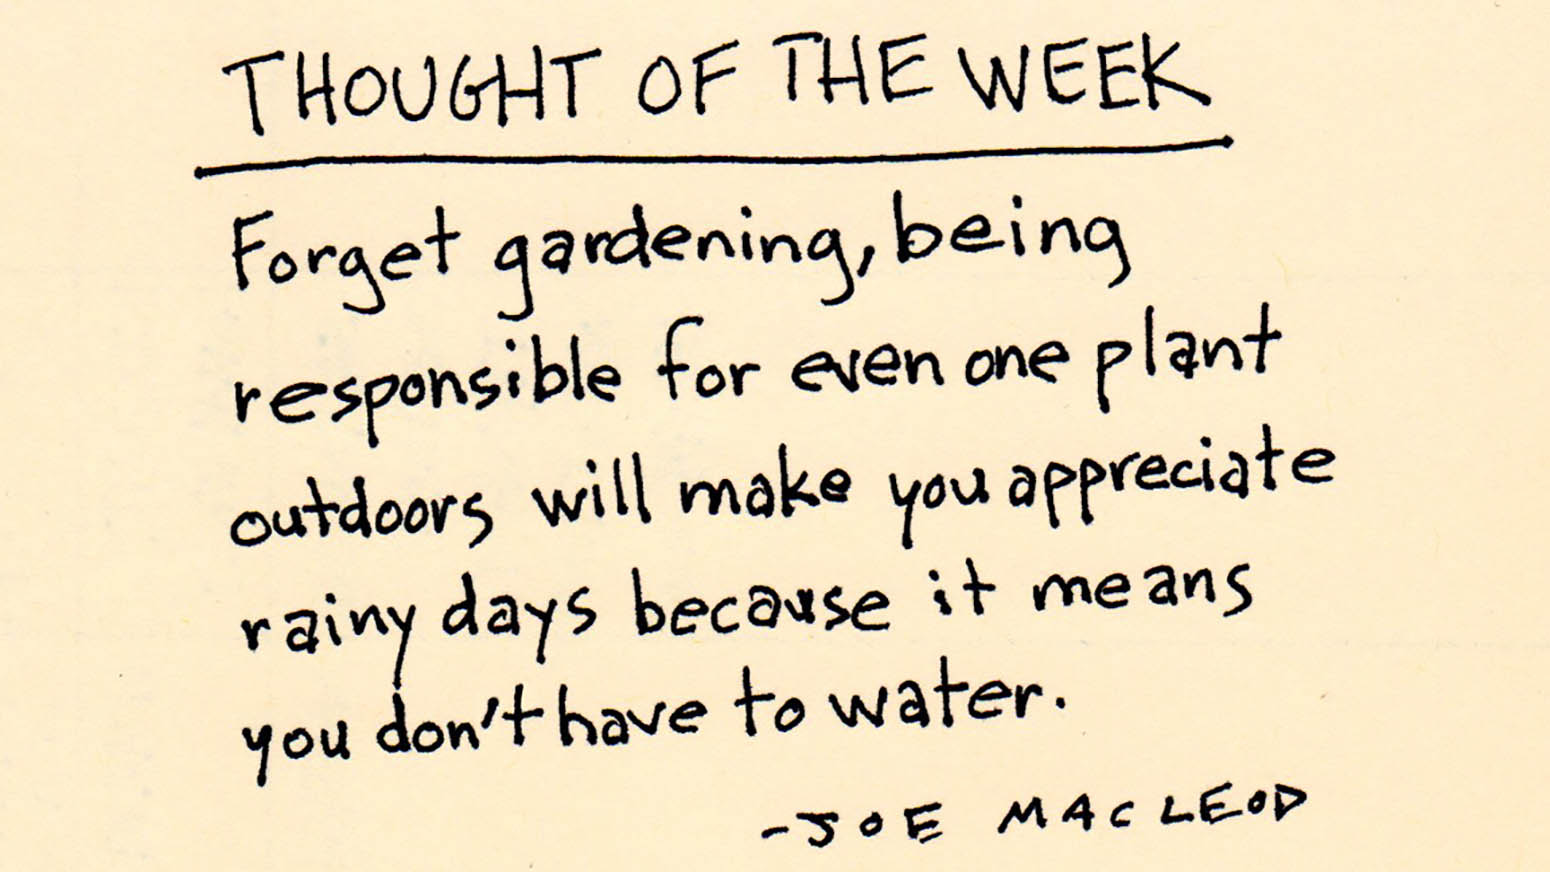 THOUGHT OF THE WEEK
Forget gardening, being
responsible for even one plant
outdoors will make you appreciate
rainy days because it means
you don't have to water.
-JOE MACLEOD